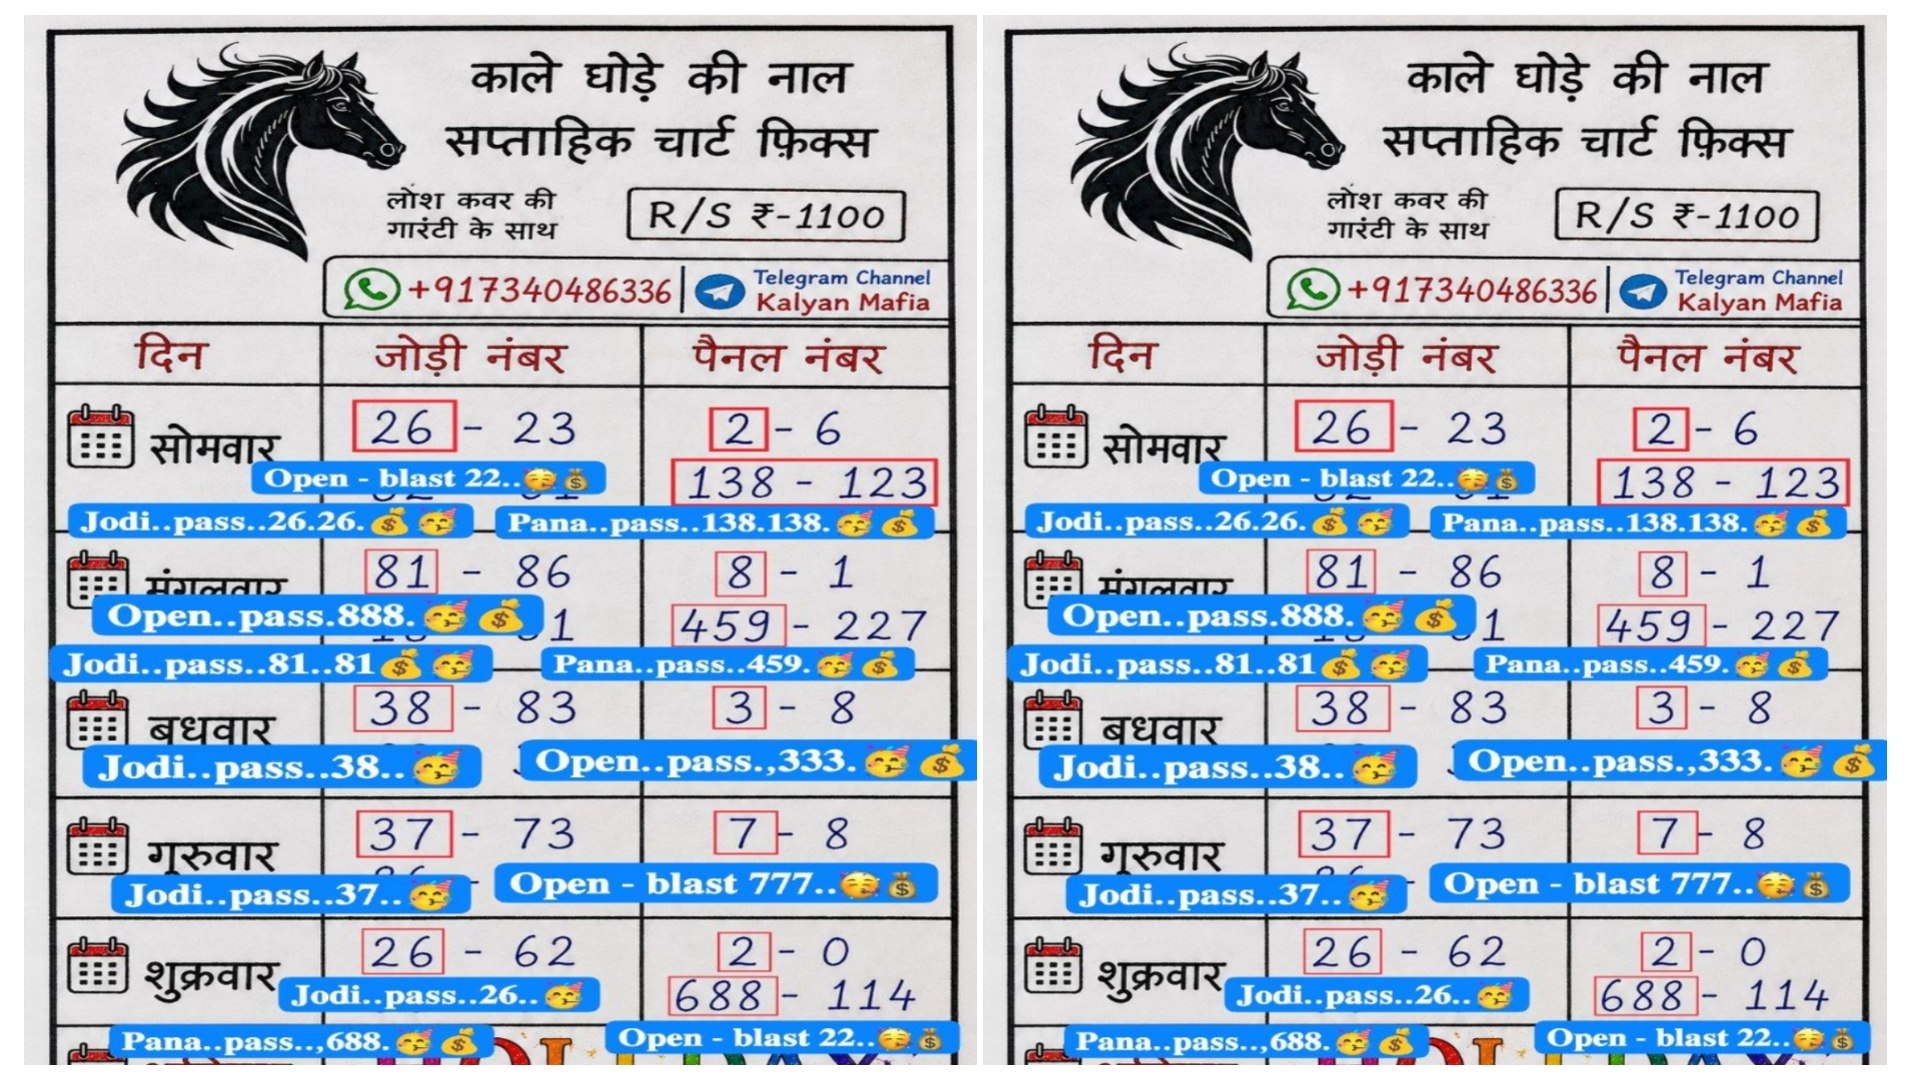 काले घोड़े की नाल
सप्ताहिक चार्ट फ़िक्स
लोश कवर की
गारंटी के साथ
R/S ₹-1100
+917340486336
Telegram Channel
Kalyan Mafia
दिन जोड़ी नंबर पैनल नंबर
सोमवार 26 - 23 2 - 6
Open - blast 22..
138 - 123
Jodi..pass..26.26. Pana..pass..138.138.
मंगलवार 81 - 86 8 - 1
Open..pass.888.
459 - 227
Jodi..pass..81..81 Pana..pass..459.
बधवार 38 - 83 3 - 8
Jodi..pass..38.. Open..pass.,333.
गुरुवार 37 - 73 7 - 8
Jodi..pass..37.. Open - blast 777..
शुक्रवार 26 - 62 2 - 0
Jodi..pass..26..
688 - 114
Pana..pass..,688. Open - blast 22..
काले घोड़े की नाल
सप्ताहिक चार्ट फ़िक्स
लोश कवर की
गारंटी के साथ
R/S ₹-1100
+917340486336
Telegram Channel
Kalyan Mafia
दिन जोड़ी नंबर पैनल नंबर
सोमवार 26 - 23 2 - 6
Open - blast 22..
138 - 123
Jodi..pass..26.26. Pana..pass..138.138.
मंगलवार 81 - 86 8 - 1
Open..pass.888.
459 - 227
Jodi..pass..81..81 Pana..pass..459.
बधवार 38 - 83 3 - 8
Jodi..pass..38.. Open..pass.,333.
गुरुवार 37 - 73 7 - 8
Jodi..pass..37.. Open - blast 777..
शुक्रवार 26 - 62 2 - 0
Jodi..pass..26..
688 - 114
Pana..pass..,688. Open - blast 22..